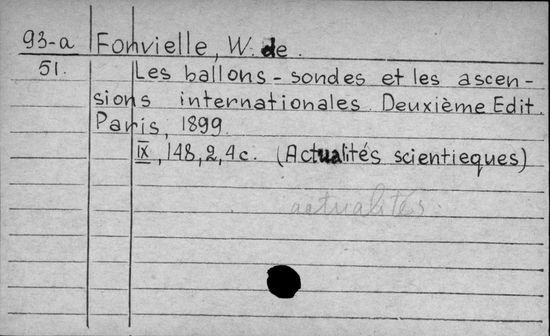 93-a Fonvielle, W. de.
51. Les ballons-sondes et les ascen-
sions internationales. Deuxième Edit.
Paris, 1899.
IX, 148, 2, 4 c. (Actualités scientieques)
actualités.